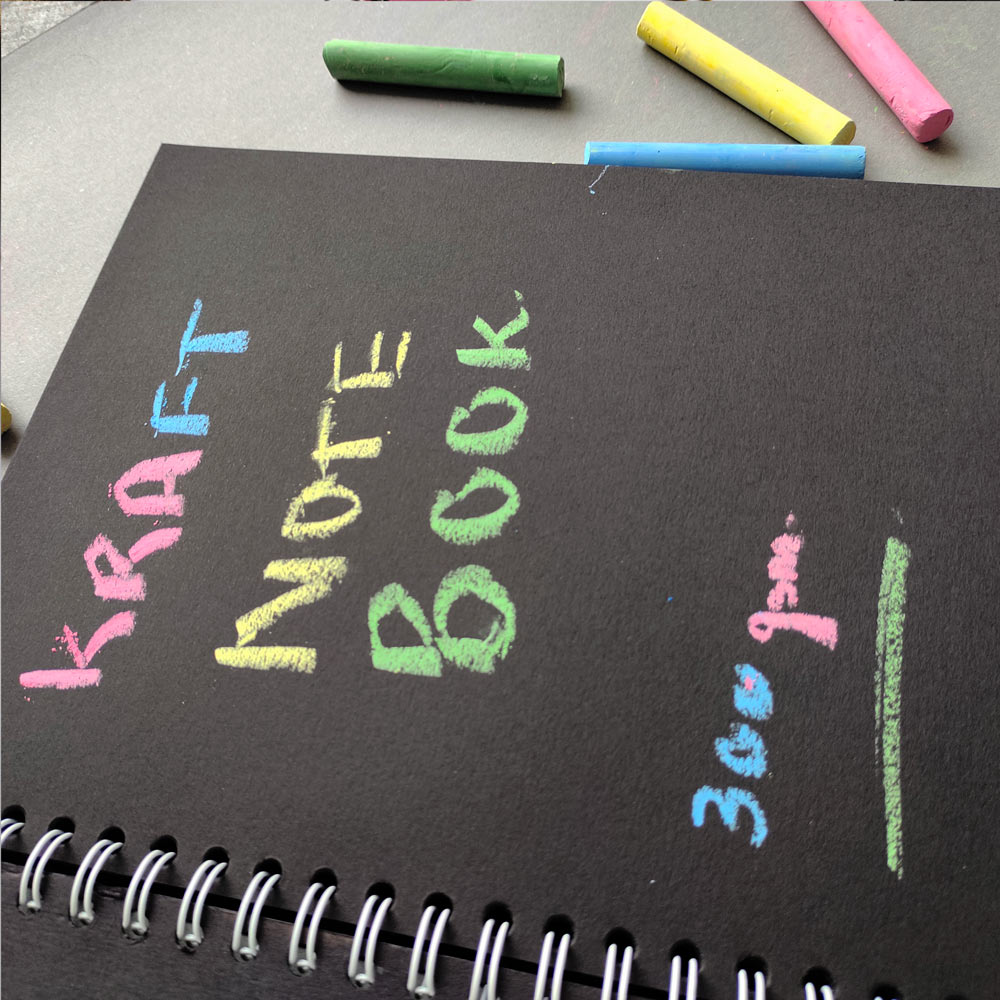 KRAFT
NOTE
BOOK.
300 gsm.